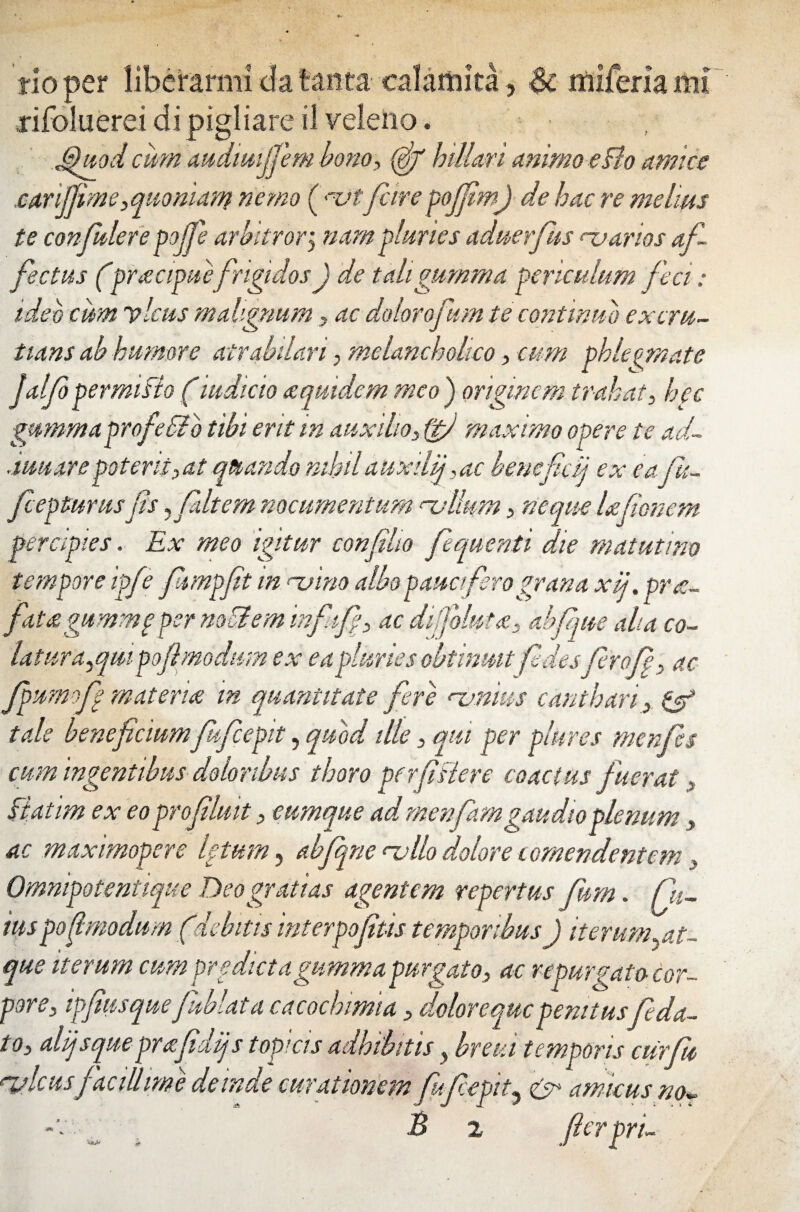 rio per liberarmi da tanta calamità, & miſeria mi
riſoluerei di pigliare il veleno.
Quod cùm audiuiſſem bono, & hillari animo eſto amice
cariſſime, quoniam nemo (vt ſcire poſſim) de hac re melius
te conſulere poſſe arbitror; nam pluries aduerſus varios af-
fectus (præcipuè frigidos) de tali gumma periculum feci:
ideò cùm vlcus malignum, ac doloroſum te continuò excru-
tians ab humore atrabilari, melancholico, cum phlegmate
ſalſo permiſto (iudicio æquidem meo) originem trahat, hęc
gumma profectò tibi erit in auxilio, & maximo opere te ad-
iuuare poterit, at quando nihil auxilij, ac beneficij ex ea ſu-
ſcepturus ſis, ſaltem nocumentum vllum, neque læſionem
percipies. Ex meo igitur conſilio ſequenti die matutino
tempore ipſe ſumpſit in vino albo paucifero grana xij. præ-
fatæ gummę per noctem infuſę, ac diſſolutæ, abſque alia co-
latura, qui poſtmodum ex ea pluries obtinuit ſedes ſeroſę, ac
ſpumoſę materiæ in quantitate ferè vnius canthari, &
tale beneficium ſuſcepit, quòd ille, qui per plures menſes
cum ingentibus doloribus thoro perſiſtere coactus fuerat,
ſtatim ex eo proſiluit, eumque ad menſam gaudio plenum,
ac maximopere lętum, abſqne vllo dolore comendentem,
Omnipotentique Deo gratias agentem repertus ſum. Cu-
ius poſtmodum (debitis interpoſitis temporibus) iterum, at-
que iterum cum prędicta gumma purgato, ac repurgato cor-
pore, ipſiusque ſublata cacochimia, doloreque penitus ſeda-
to, alijsque præſidijs topicis adhibitis, breui temporis curſu
vlcus facillimè deinde curationem ſuſcepit, & amicus no-
B 2 ſter pri-